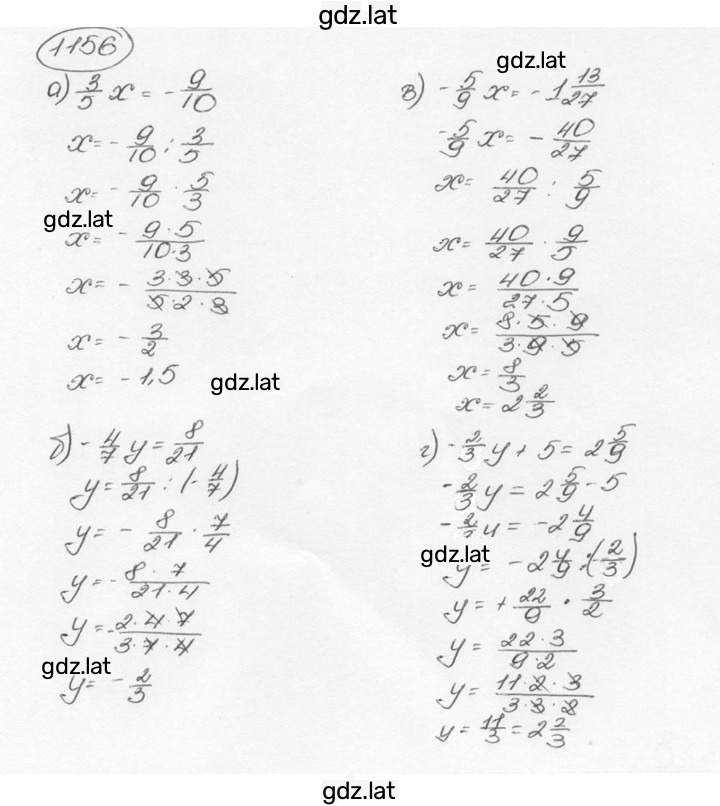 gdz.lat
1156
а) 3/5 x = - 9/10
x = - 9/10 : 3/5
x = - 9/10 · 5/3
gdz.lat
x = - 9·5/10·3
x = - 3·3·5/5·2·3
x = - 3/2
x = - 1,5
gdz.lat
б) - 4/7 y = 8/21
y = 8/21 : (- 4/7)
y = - 8/21 · 7/4
y = - 8·7/21·4
y = - 2·4·7/3·7·4
gdz.lat
y = - 2/3
gdz.lat
в) - 5/9 x = - 1 13/27
- 5/9 x = - 40/27
x = 40/27 : 5/9
x = 40/27 · 9/5
x = 40·9/27·5
x = 8·5·9/3·9·5
x = 8/3
x = 2 2/3
г) - 2/3 y + 5 = 2 5/9
- 2/3 y = 2 5/9 - 5
y = - 2 4/9
gdz.lat
y = - 2 4/9 : (2/3)
y = + 22/9 · 3/2
y = 22·3/9·2
y = 11·2·3/3·3·2
y = 11/3 = 2 2/3
gdz.lat